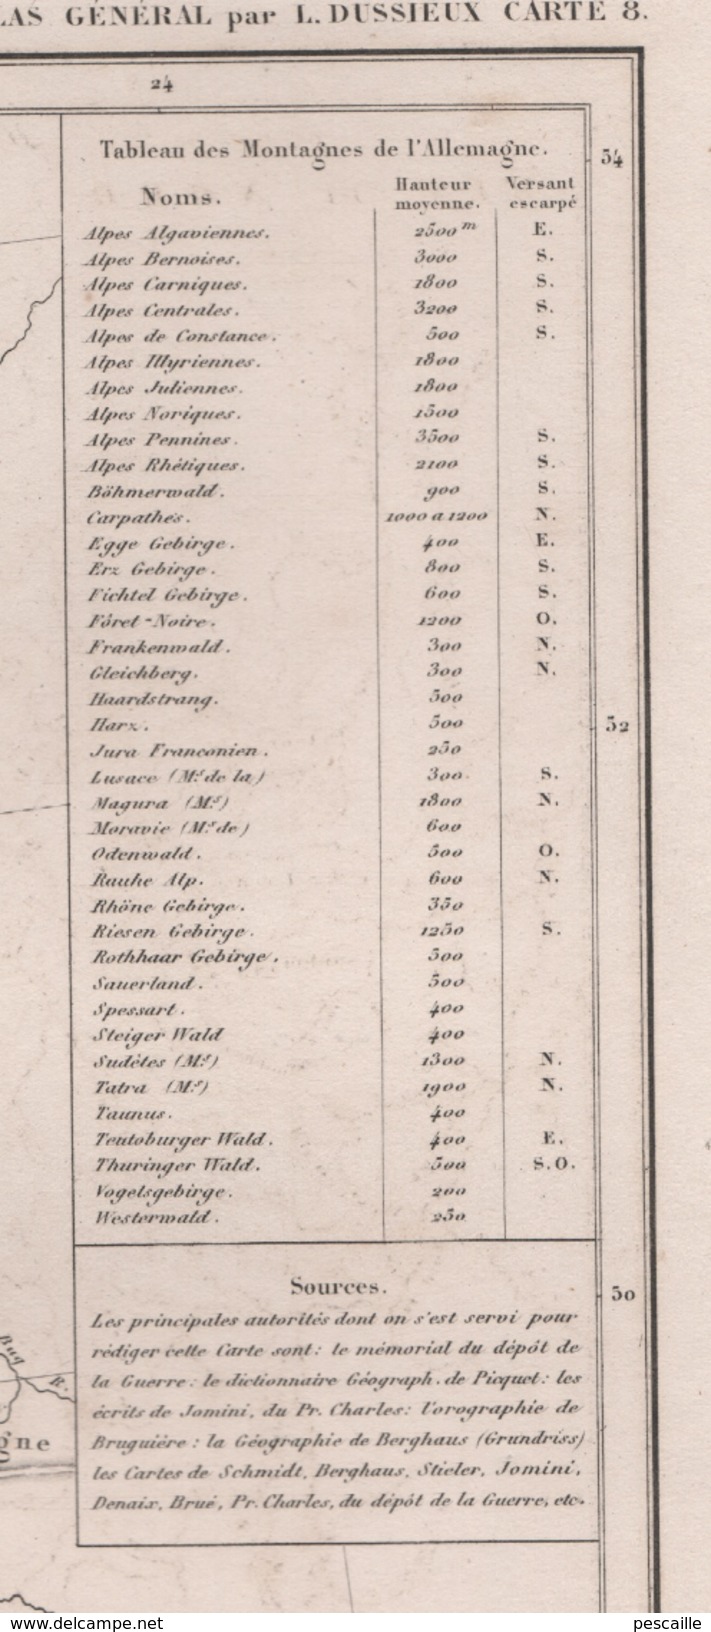 LAS GÉNÉRAL par L. DUSSIEUX CARTE 8.
24
Tableau des Montagnes de l'Allemagne.
54
Noms. Hauteur moyenne. Versant escarpé
Alpes Algaviennes. 2500 m E.
Alpes Bernoises. 3000 S.
Alpes Carniques. 1800 S.
Alpes Centrales. 3200 S.
Alpes de Constance. 500 S.
Alpes Illyriennes. 1800
Alpes Juliennes. 1800
Alpes Noriques. 1500
Alpes Pennines. 3500 S.
Alpes Rhétiques. 2100 S.
Böhmerwald. 900 S.
Carpathes. 1000 a 1200 N.
Egge Gebirge. 400 E.
Erz Gebirge. 800 S.
Fichtel Gebirge. 600 S.
Fôret-Noire. 1200 O.
Frankenwald. 300 N.
Gleichberg. 300 N.
Haardstrang. 500
Harz. 500
52
Jura Franconien. 250
Lusace (Mts de la) 300. S.
Magura (Mts) 1800 N.
Moravie (Mts de) 600
Odenwald. 500 O.
Rauhe Alp. 600 N.
Rhöne Gebirge. 350
Riesen Gebirge. 1250 S.
Rothhaar Gebirge. 500
Sauerland. 500
Spessart. 400
Steiger Wald 400
Sudètes (Mts) 1300 N.
Tatra (Mts) 1900 N.
Taunus. 400
Teutoburger Wald. 400 E.
Thuringer Wald. 500 S.O.
Vogelsgebirge. 200
Westerwald. 250
Sources.
50
Les principales autorités dont on s'est servi pour
rédiger cette Carte sont: le mémorial du dépôt de
la Guerre: le dictionnaire Géograph. de Picquet: les
écrits de Jomini, du Pr. Charles: l'orographie de
Bruguière: la Géographie de Berghaus (Grundriss)
les Cartes de Schmidt, Berghaus, Stieler, Jomini,
Denaix, Brué, Pr. Charles, du dépôt de la Guerre, etc.
Bug R.
gne
www.delcampe.net pescaille